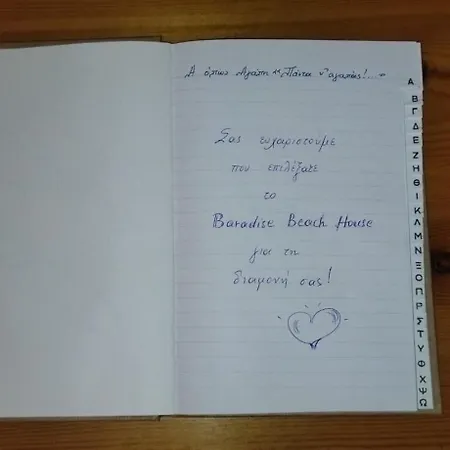 Α όπως Αγάπη κ Πάντα ν'αγαπάς!...
Σας ευχαριστούμε
που επιλέξατε
το
Baradise Beach House
για τη
διαμονή σας!
Α
Β
Γ
Δ
Ε
Ζ
Η
Θ
Ι
Κ
Λ
Μ
Ν
Ξ
Ο
Π
Ρ
Σ
Τ
Υ
Φ
Χ
Ψ
Ω